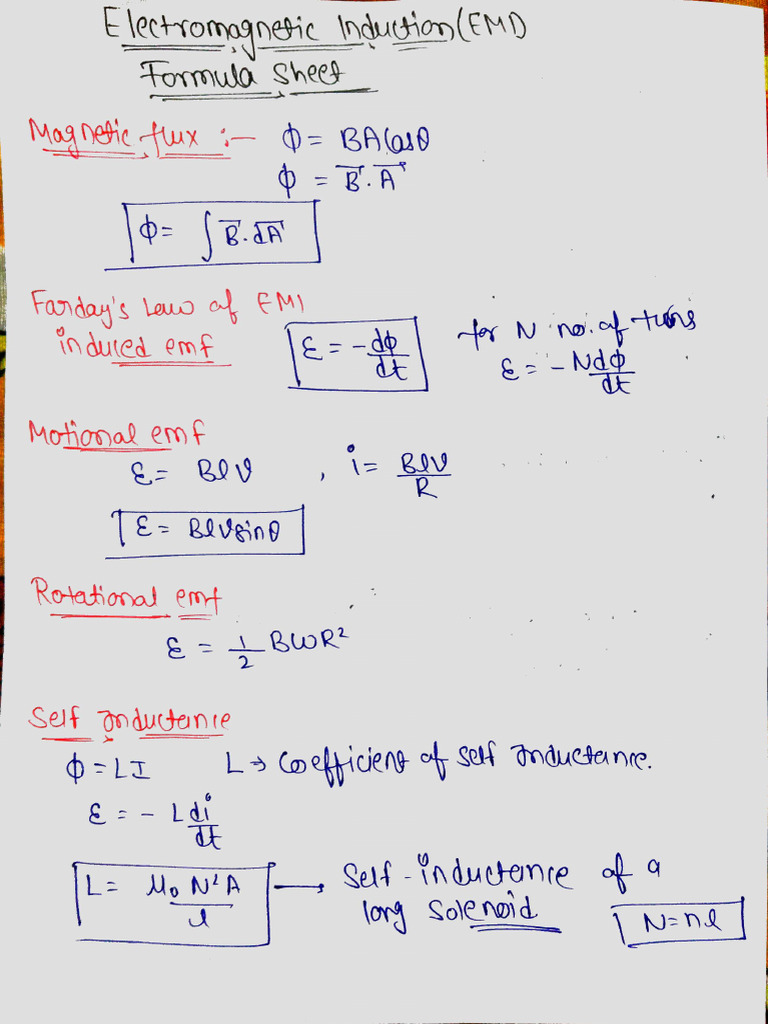 Electromagnetic Induction(EMI)
Formula Sheet
Magnetic flux :- ϕ = BACosθ
ϕ = B⃗.A⃗
ϕ = ∫ B⃗.dA⃗
Farday's Law of EMI
induced emf ε = -dϕ/dt for N no. of turns
ε = -Ndϕ/dt
Motional emf
ε = Blv , i = Blv/R
ε = Blvsinθ
Rotational emf
ε = 1/2 BωR²
Self Inductance
ϕ = LI L → Coefficient of Self Inductance.
ε = - Ldi/dt
L = μ₀N²A/l → Self-inductance of a
long Solenoid N = nl